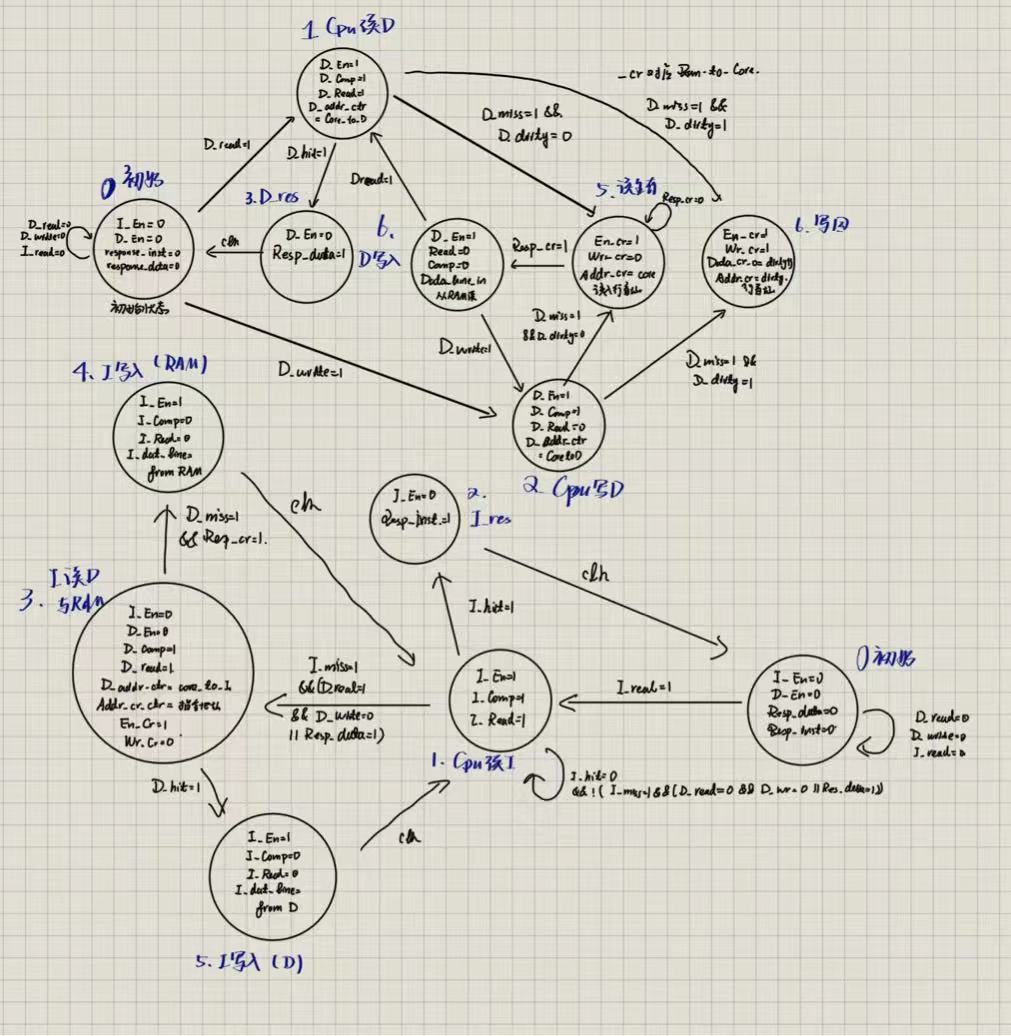 1 Cpu读D
D_En=1
D_Comp=1
D_Read=1
D_addr_ctr
= Core_to_D
_cr 对应 Ram-to-Core.
D_miss=1 &&
D_dirty=1
D_miss=1 &&
D_dirty=0
D_read=1
D_hit=1
Dread=1
0 初始
I_En=0
D_En=0
response_inst=0
response_data=0
初始状态
D_read=0
D_write=0
I_read=0
clk
3. D_res
D_En=0
Resp_data=1
6.
D写入
D_En=1
Read=0
Comp=0
Data_line_in
从RAM读
Resp_cr=1
5.读主存
Resp_cr=0
En_cr=1
Wr_cr=0
Addr_cr=core
读入行首址
6.写回
En_cr=1
Wr_cr=1
Data_cr_o=dirty行
Addr_cr=dirty.
行首址
D_write=1
D_write=1
D_miss=1
&& D_dirty=0
D_miss=1 &&
D_dirty=1
D_En=1
D_Comp=1
D_Read=0
D_Addr_ctr
=CoretoD
2 Cpu写D
4.I写入(RAM)
I_En=1
I_Comp=0
I_Read=0
I_dat_line=
from RAM
clk
D_miss=1
&& Resp_cr=1.
I_En=0
Resp_inst.=1
2.
I_res
clk
I_hit=1
I读D
3.与RAM
I_En=0
D_En=0
D_Comp=1
D_read=1.
D_addr-ctr=core_to_I
En_Cr=1
Wr_Cr=0
I_miss=1
&&(D_read=1
&& D_Write=0
|| Resp_data=1)
I_En=1
I_Comp=1
I_Read=1
1.Cpu读I
I_read=1
0初始
I_En=0
D_En=0
Resp_data=0
Resp_Inst=0
D_read=0
D_write=0
I_read=0
I_hit=0
&& !( I_miss=1 && (D_read=0 && D_wr=0 || Res_data=1))
D_hit=1
clk
I_En=1
I_Comp=0
I_Read=0
I_dat_line=
from D
5.I写入(D)